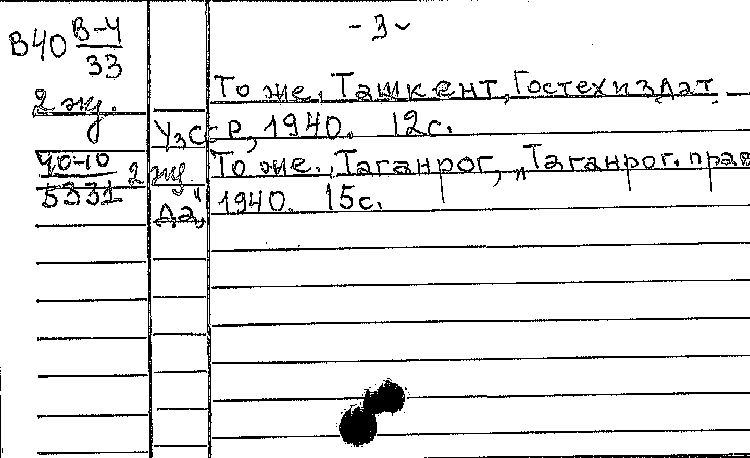 - 3 -
В40 В-4
33
2 экз.
То же, Ташкент, Гостехиздат
УзССР, 1940. 12с.
40-10
5331 2 экз.
То же., Таганрог, „Таганрог. прав
да", 1940. 15с.